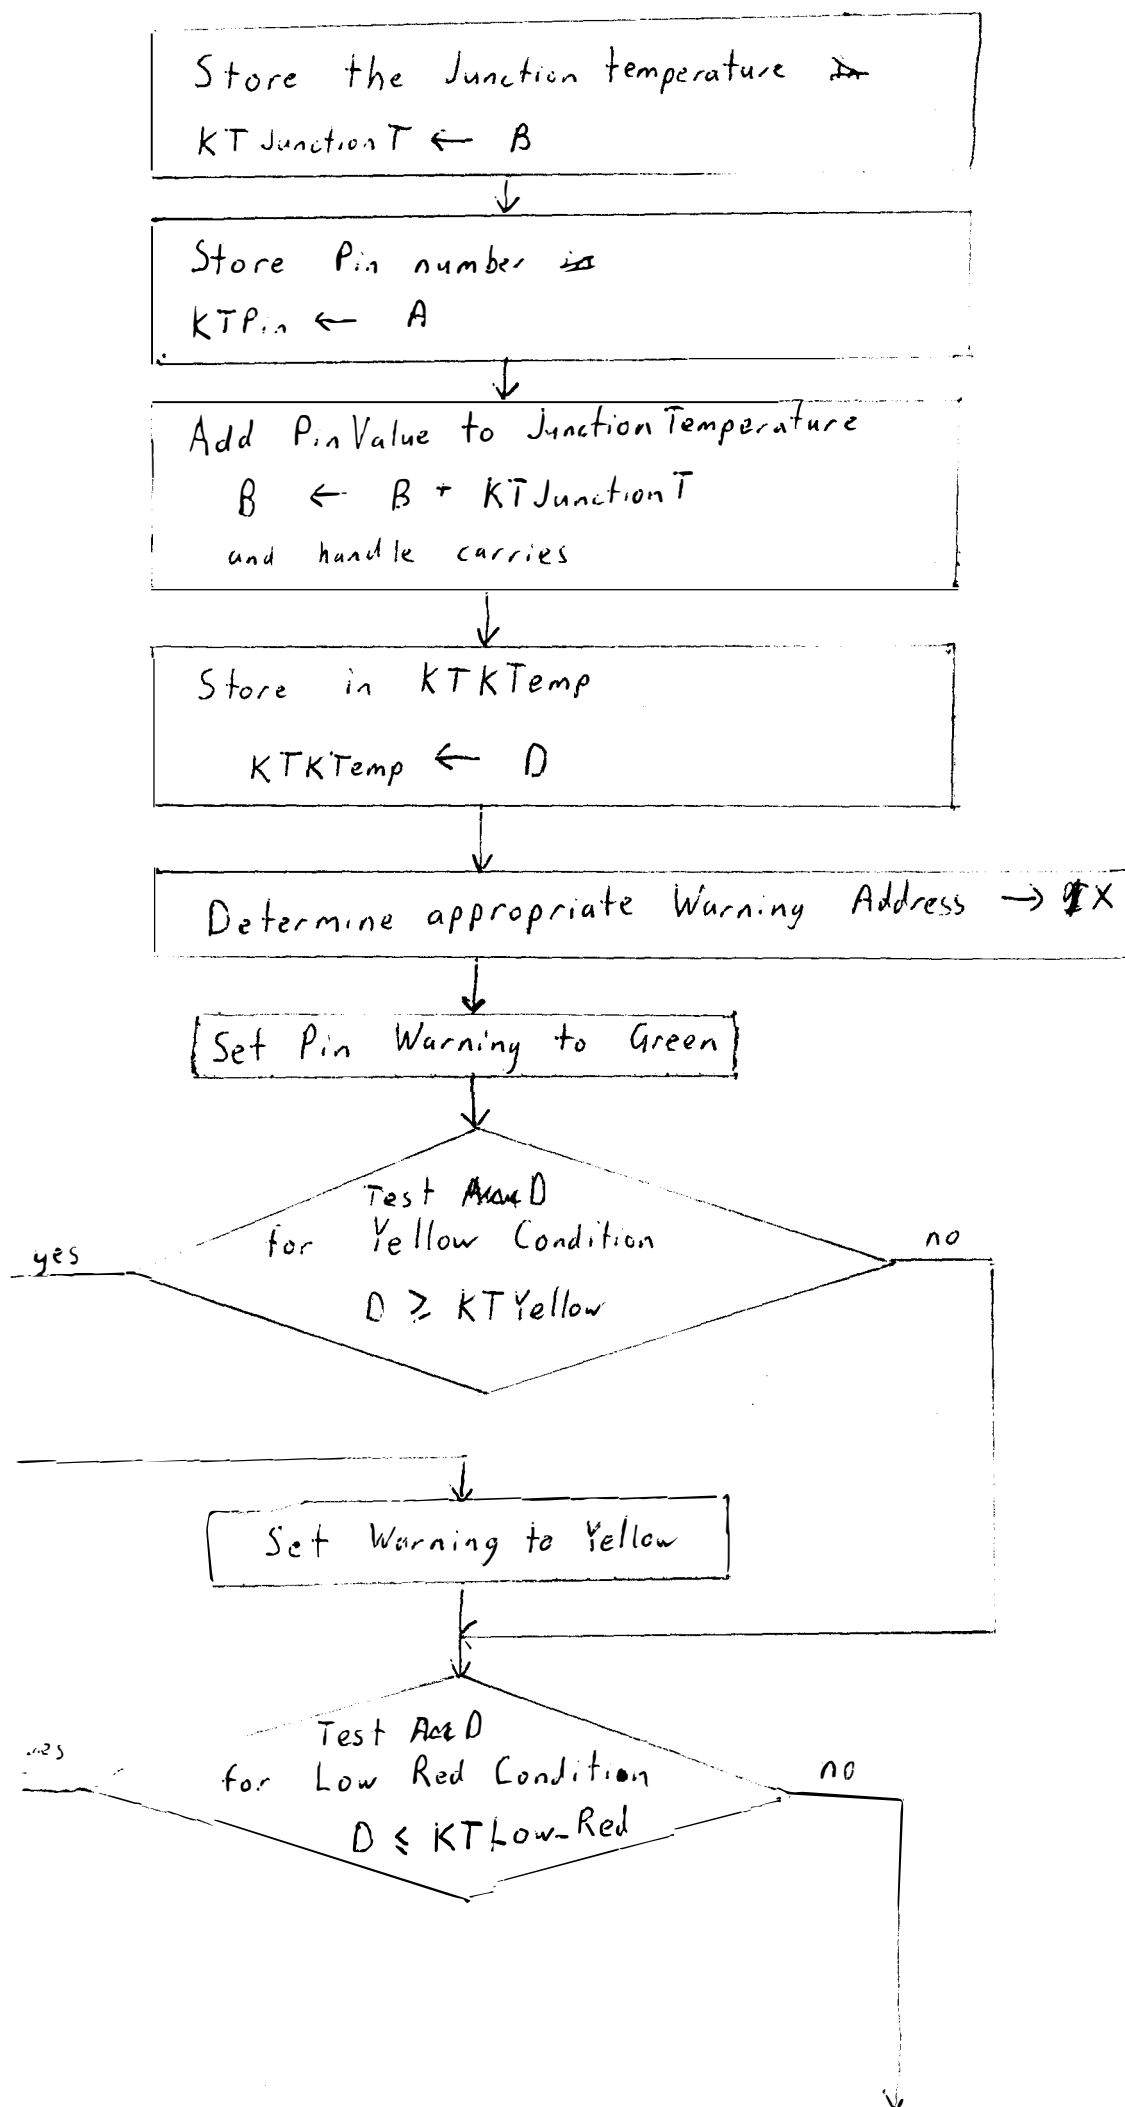 Store the Junction temperature
KTJunctionT ← B
Store Pin number
KTPin ← A
Add PinValue to JunctionTemperature
B ← B + KTJunctionT
and handle carries
Store in KTKTemp
KTKTemp ← D
Determine appropriate Warning Address → X
Set Pin Warning to Green
Test D
for Yellow Condition
D ≥ KTYellow
yes
no
Set Warning to Yellow
Test D
for Low Red Condition
D ≤ KTLow-Red
no